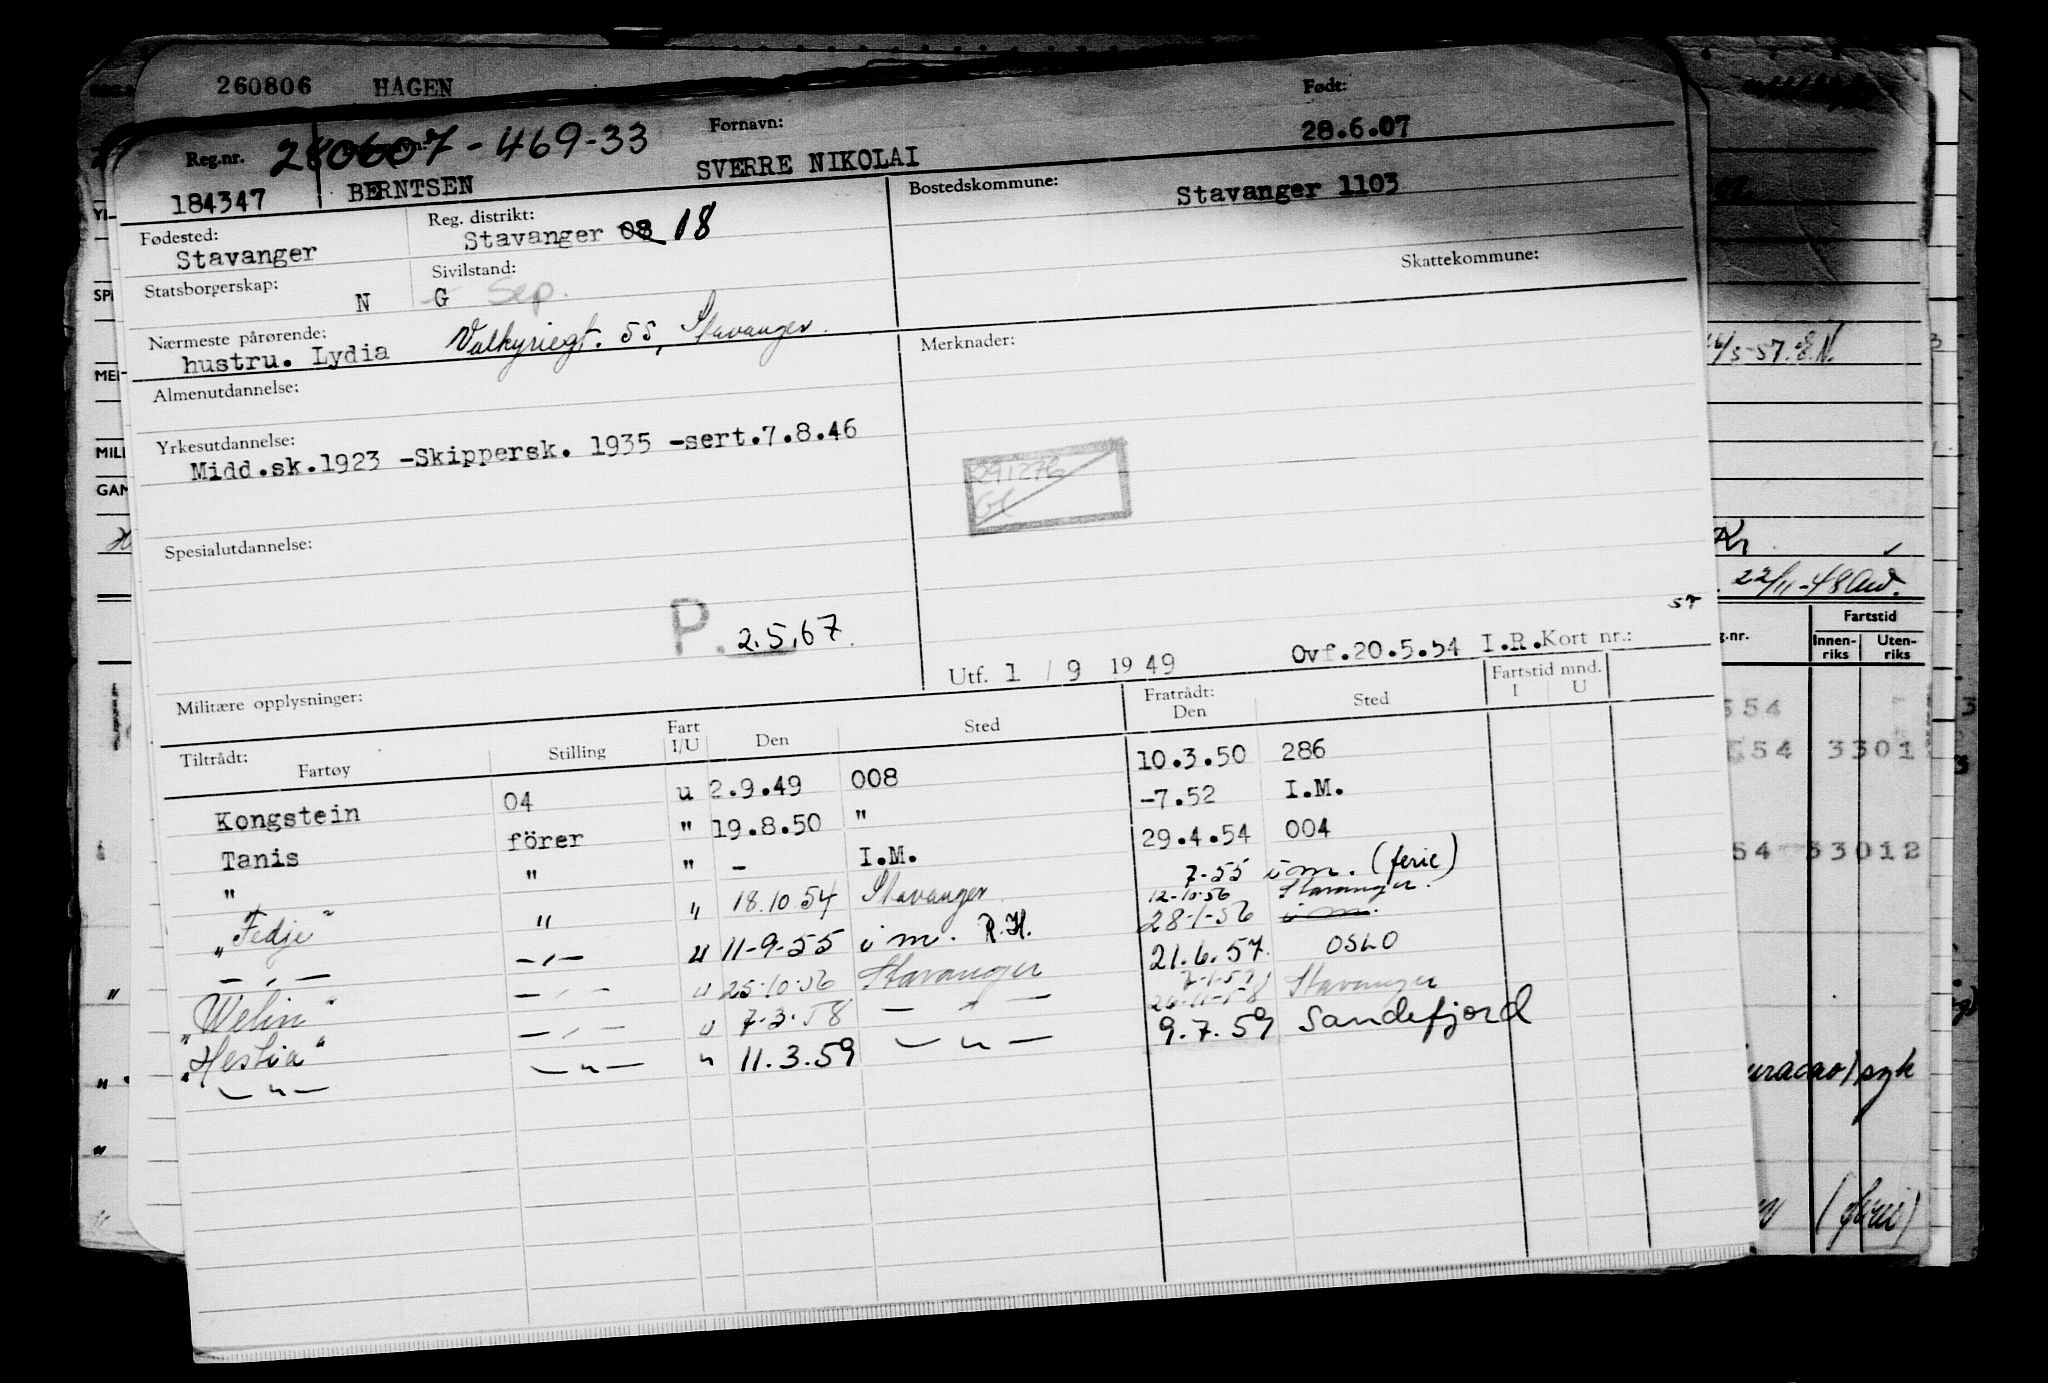 260806 HAGEN
Reg.nr. 280607-469-33 Fornavn: Født:
184347 BERNTSEN SVERRE NIKOLAI 28.6.07
Fødested: Reg. distrikt: Bostedskommune:
Stavanger Stavanger 08 18 Stavanger 1103
Statsborgerskap: Sivilstand: Skattekommune:
N G Sep.
Nærmeste pårørende: Merknader:
hustru. Lydia Valkyriegt. 55, Stavanger.
Almenutdannelse:
Yrkesutdannelse:
Midd.sk.1923 -Skippersk. 1935 -sert.7.8.46
291276
Spesialutdannelse:
P. 2.5.67.
Utf. 1 / 9 1949 Ovf.20.5.54 I.R. Kort nr.:
Militære opplysninger:
Tiltrådt: Fratrådt: Fartstid mnd.
Fartøy Stilling Fart I/U Den Sted Den Sted I U
Kongstein 04 u 2.9.49 008 10.3.50 286
Tanis förer " 19.8.50 " -7.52 I.M.
" " " - I.M. 29.4.54 004
"Fedje" " " 18.10.54 Stavanger 7-55 i m. (ferie)
12-10-56 Stavanger.
— „ — — „ — u 11-9-55 i m. R.H. 28-1-56 i m.
"Welin" — „ — u 25-10-56 Stavanger 21.6.57. OSLO
"Hestia" — „ — u 7-3-58 — „ — 26-11-58 Stavanger
— „ — — „ — " 11.3.59 — „ — 9.7.59 Sandefjord
MEI
MIL
GAN
22/11-48
g.nr. Fartstid
Innen-riks Uten-riks
554
54 3301
54 33012
uracao/syk
(ferie)